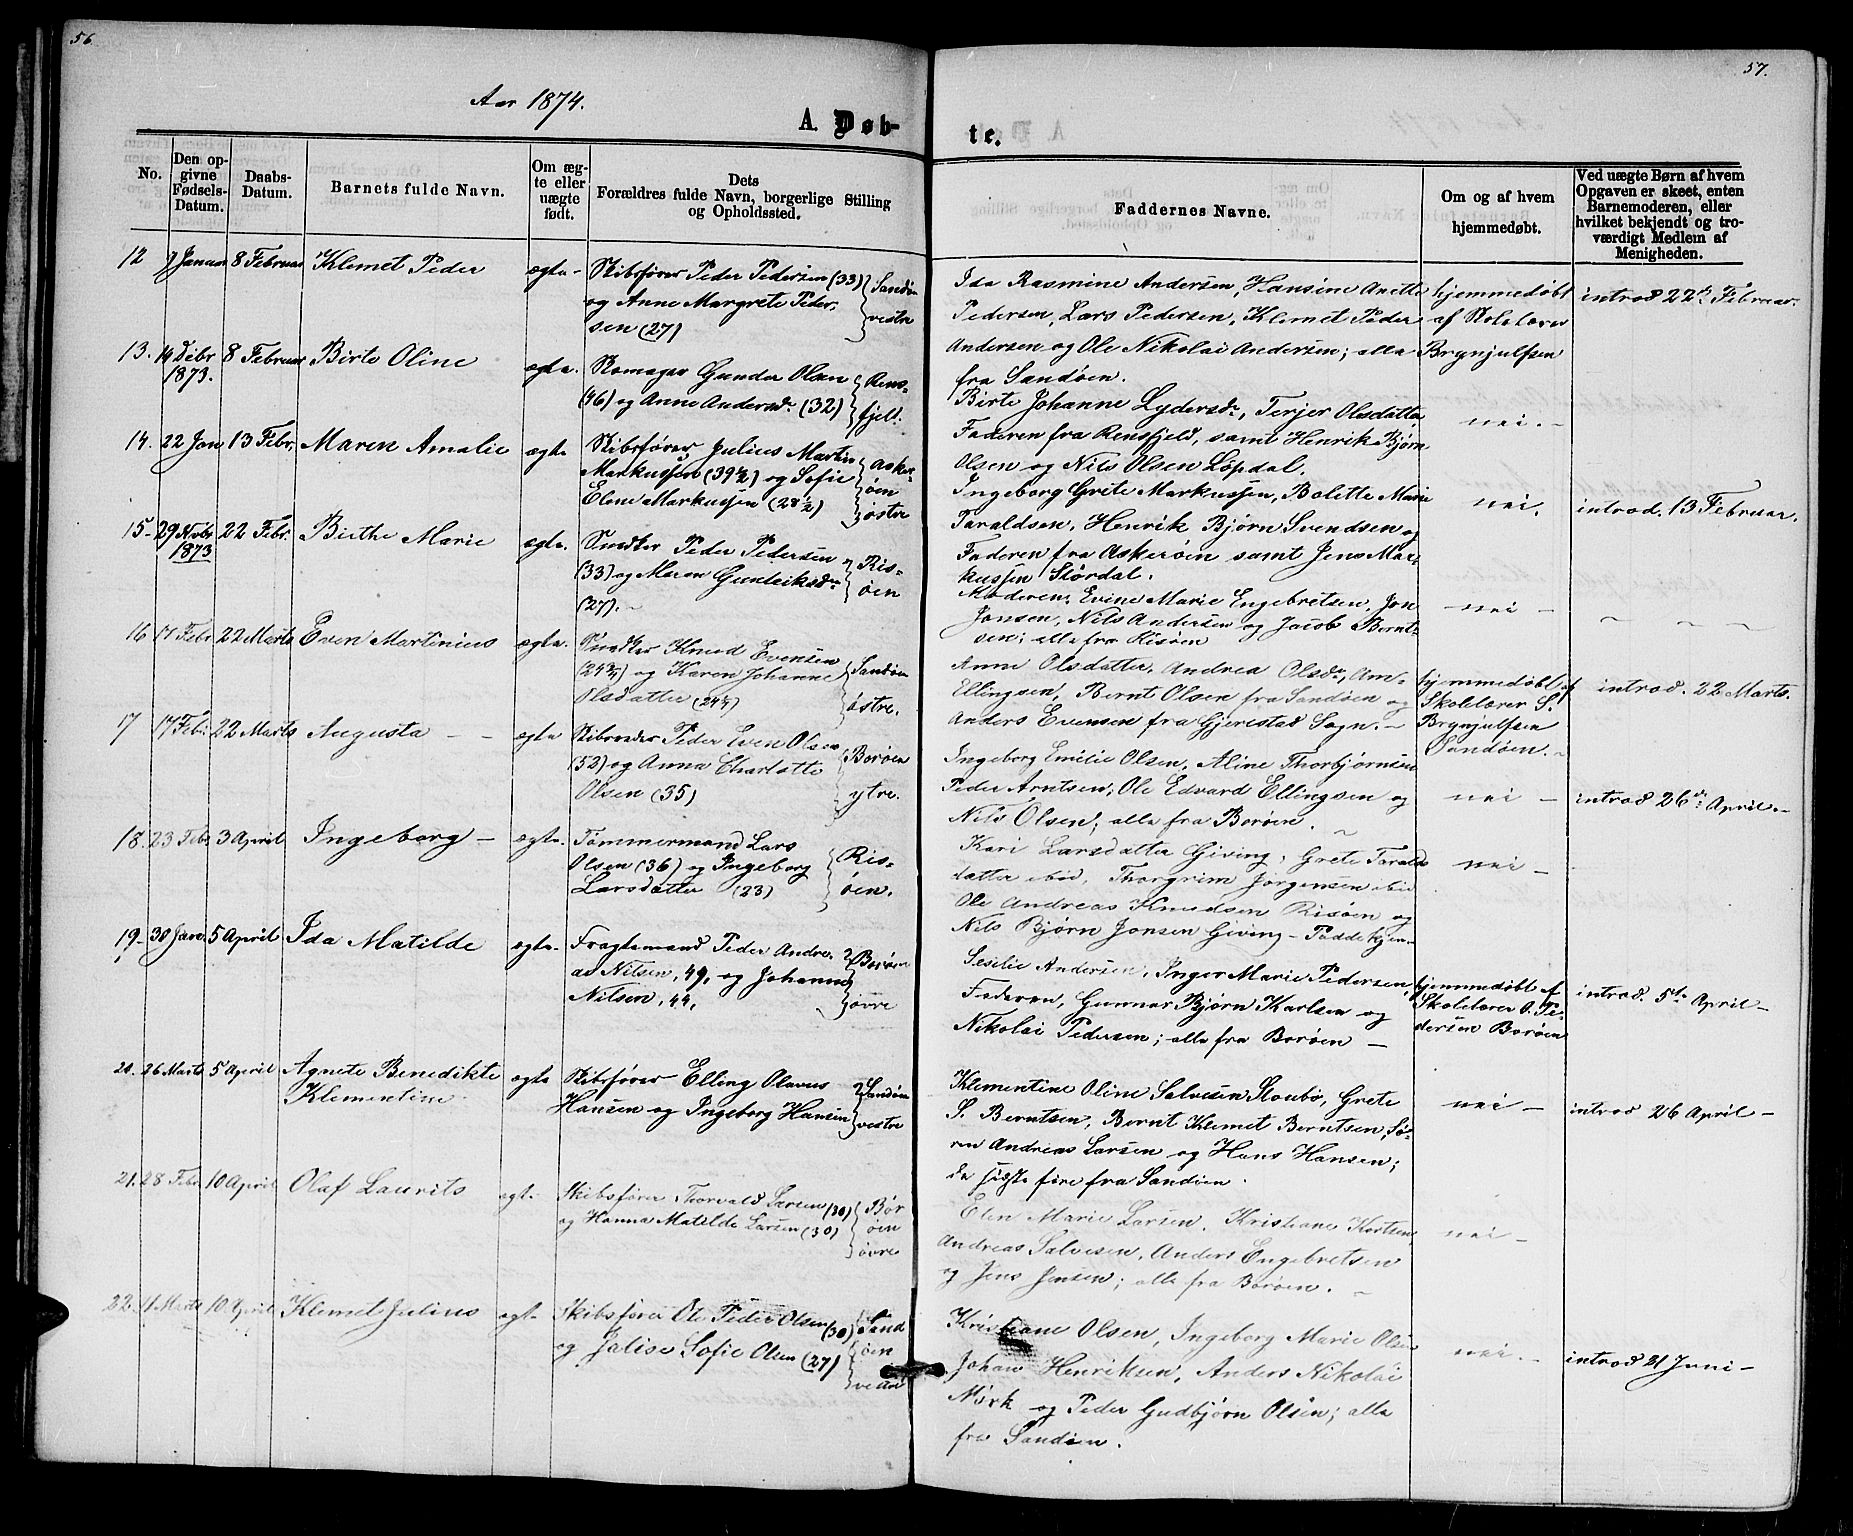 56
57.
Aar 1874.
A. Døb-
te.
No.
Den op-
givne
Fødsels-
Datum.
Daabs-
Datum.
Barnets fulde Navn.
Om æg-
te eller
uægte
født.
Dets
Forældres fulde Navn, borgerlige Stilling
og Opholdssted.
Faddernes Navne.
Om og af hvem
hjemmedøbt.
Ved uægte Børn af hvem
Opgaven er skeet, enten
Barnemoderen, eller
hvilket bekjendt og tro-
værdigt Medlem af
Menigheden.
12 7 Januar 8 Februar Klemet Peder ægte
Skibsfører Peder Pedersen (33)
og Anne Margrete Peder-
sen (27)
Sandøen
vestre
Ida Rasmine Andersen, Hansine Anette
Pedersen, Lars Pedersen, Klemet Peder
Andersen og Ole Nikolai Andersen; alle
fra Sandøen.
hjemmedøbt
af Skolelærer
Brynjulfsen
introd 22de Februar.
13. 14 Debr 1873. 8 Februar Birte Oline ægte.
Skomager Gunder Olsen
(46) og Anne Andersdr (32)
Rens-
fjell.
Birte Johanne Lydersdr, Terjer Olsdatter
Faderen fra Rensfjeld, samt Henrik Bjørn
Olsen og Nils Olsen Løpdal.
nei.
14. 22 Jan 13 Febr. Maren Amalie ægte
Skibsfører Julius Martin
Markussen (39½) og Sofie
Elene Markussen (28½)
Asker-
øen
østre
Ingeborg Grete Markussen, Bolette Marie
Taraldsen, Henrik Bjørn Svendsen og
Faderen fra Askerøen samt Jens Mar-
kussen Stördal.
nei.
introd. 13 Februar.
15. 29 Novbr 1873 22 Febr. Birthe Marie ægte.
Snedker Peder Pedersen
(33) og Maren Gunleiksdr
(27).
Ris-
øen
Moderen, Evine Marie Engebretsen, Jon
Jonsen, Nils Andersen og Jacob Bernt-
sen; alle fra Risøen
nei
16 17 Febr 22 Marts Even Martinius ægte.
Snedker Knud Evensen
og Karen Johanne
Olsdatter
Sandøen
østre.
Anne Olsdatter, Andrea Olsdr, Am-
Ellingsen, Bernt Olsen fra Sandøen og
Anders Evensen fra Gjerestad Sogn.
hjemmedøbt af
Skolelærer S.
Brynjulfsen
Sandøen.
introd. 22 Marts.
17 17 Febr. 22 Marts Augusta ægte
Skibsreder Peder Even Olsen
(52) og Anna Charlotte
Olsen (35)
Borøen
ytre.
Ingeborg Emilie Olsen, Aline Thorbjørnsen
Peder Arntsen, Ole Edvard Ellingsen og
Nils Olsen; alle fra Borøen.
nei
introd 26de April.
18. 23 Febr 3 April Ingeborg ægte.
Tømmermand Lars
Olsen (36) og Ingeborg
Larsdatter (23)
Ris-
øen.
Kari Larsdatter Giving, Grete Tarald-
datter ibid, Thorgrim Jørgensen ibid
Ole Andreas Knudsen Risøen og
Nils Bjørn Jonsen Giving
nei
19. 30 Jan. 5 April Ida Matilde ægte.
Fragtemand Peder Andre-
as Nilsen, 49, og Johanne
Nilsen, 44,
Borøen
øvre
Seselie Andersen, Inger Marie Pedersen,
Faderen, Gunnar Bjørn Karlsen og
Nikolai Pedersen; alle fra Borøen
hjemmedøbt af
Skolelærer O. Pe-
dersen Borøen
introd. 5te April
20. 26 Marts 5 April Agnete Benedikte
Klementine
ægte
Skibsfører Elling Olavus
Hansen og Ingeborg Hansen
Sandøen
vestre
Klementine Oline Salvesen Staubø, Grete
S. Berntsen, Bernt Klemet Berntsen, Sø-
ren Andreas Larsen og Hans Hansen;
de sidste fire fra Sandøen.
nei
introd 26 April
21. 28 Febr 10 April Olaf Laurits egt.
Skibsfører Thorvald Larsen (30)
og Hanna Matilde Larsen (30)
Bor
øen
øvre
Elen Marie Larsen, Kristiane Knutsen
Andreas Salvesen, Anders Engebretsen
og Jens Jensen; alle fra Borøen.
nei
22. 11 Marts 10 April Klemet Julius egt.
Skibsfører Ole Peder Olsen (30)
og Jalise Sofie Olsen (27)
Sand
øen
Kristiane Olsen, Ingeborg Marie Olsen
Johan Henriksen, Anders Nikolai
Mørk og Peder Gudbjørn Olsen; alle
fra Sandøen.
nei.
introd 21 Juni